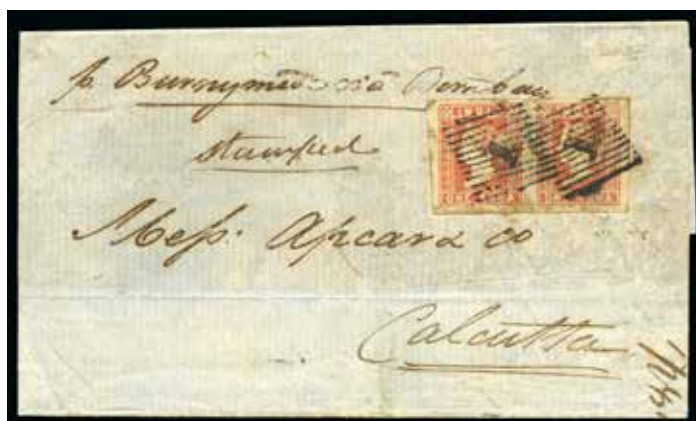 p. Burnymede viâ Bombay
stamped
Messʳˢ. Apcar & Co
Calcutta
1
1